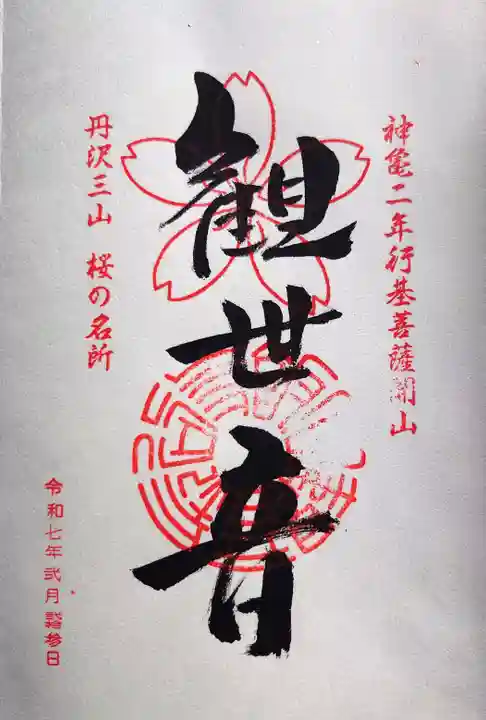 神亀二年行基菩薩開山
観世音
丹沢三山 桜の名所
令和七年弐月 参日